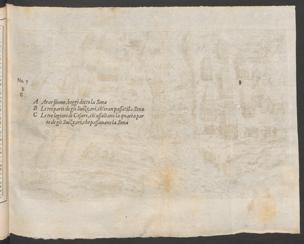 A Arar fiume, hoggi detto la Sona
B Le tre parti de gli Suizzari, ch'eran passati la Sona
C Le tre legioni di Cesare, ch'assaltano la quarta par
te de gli Suizzari, che passauano la Sona